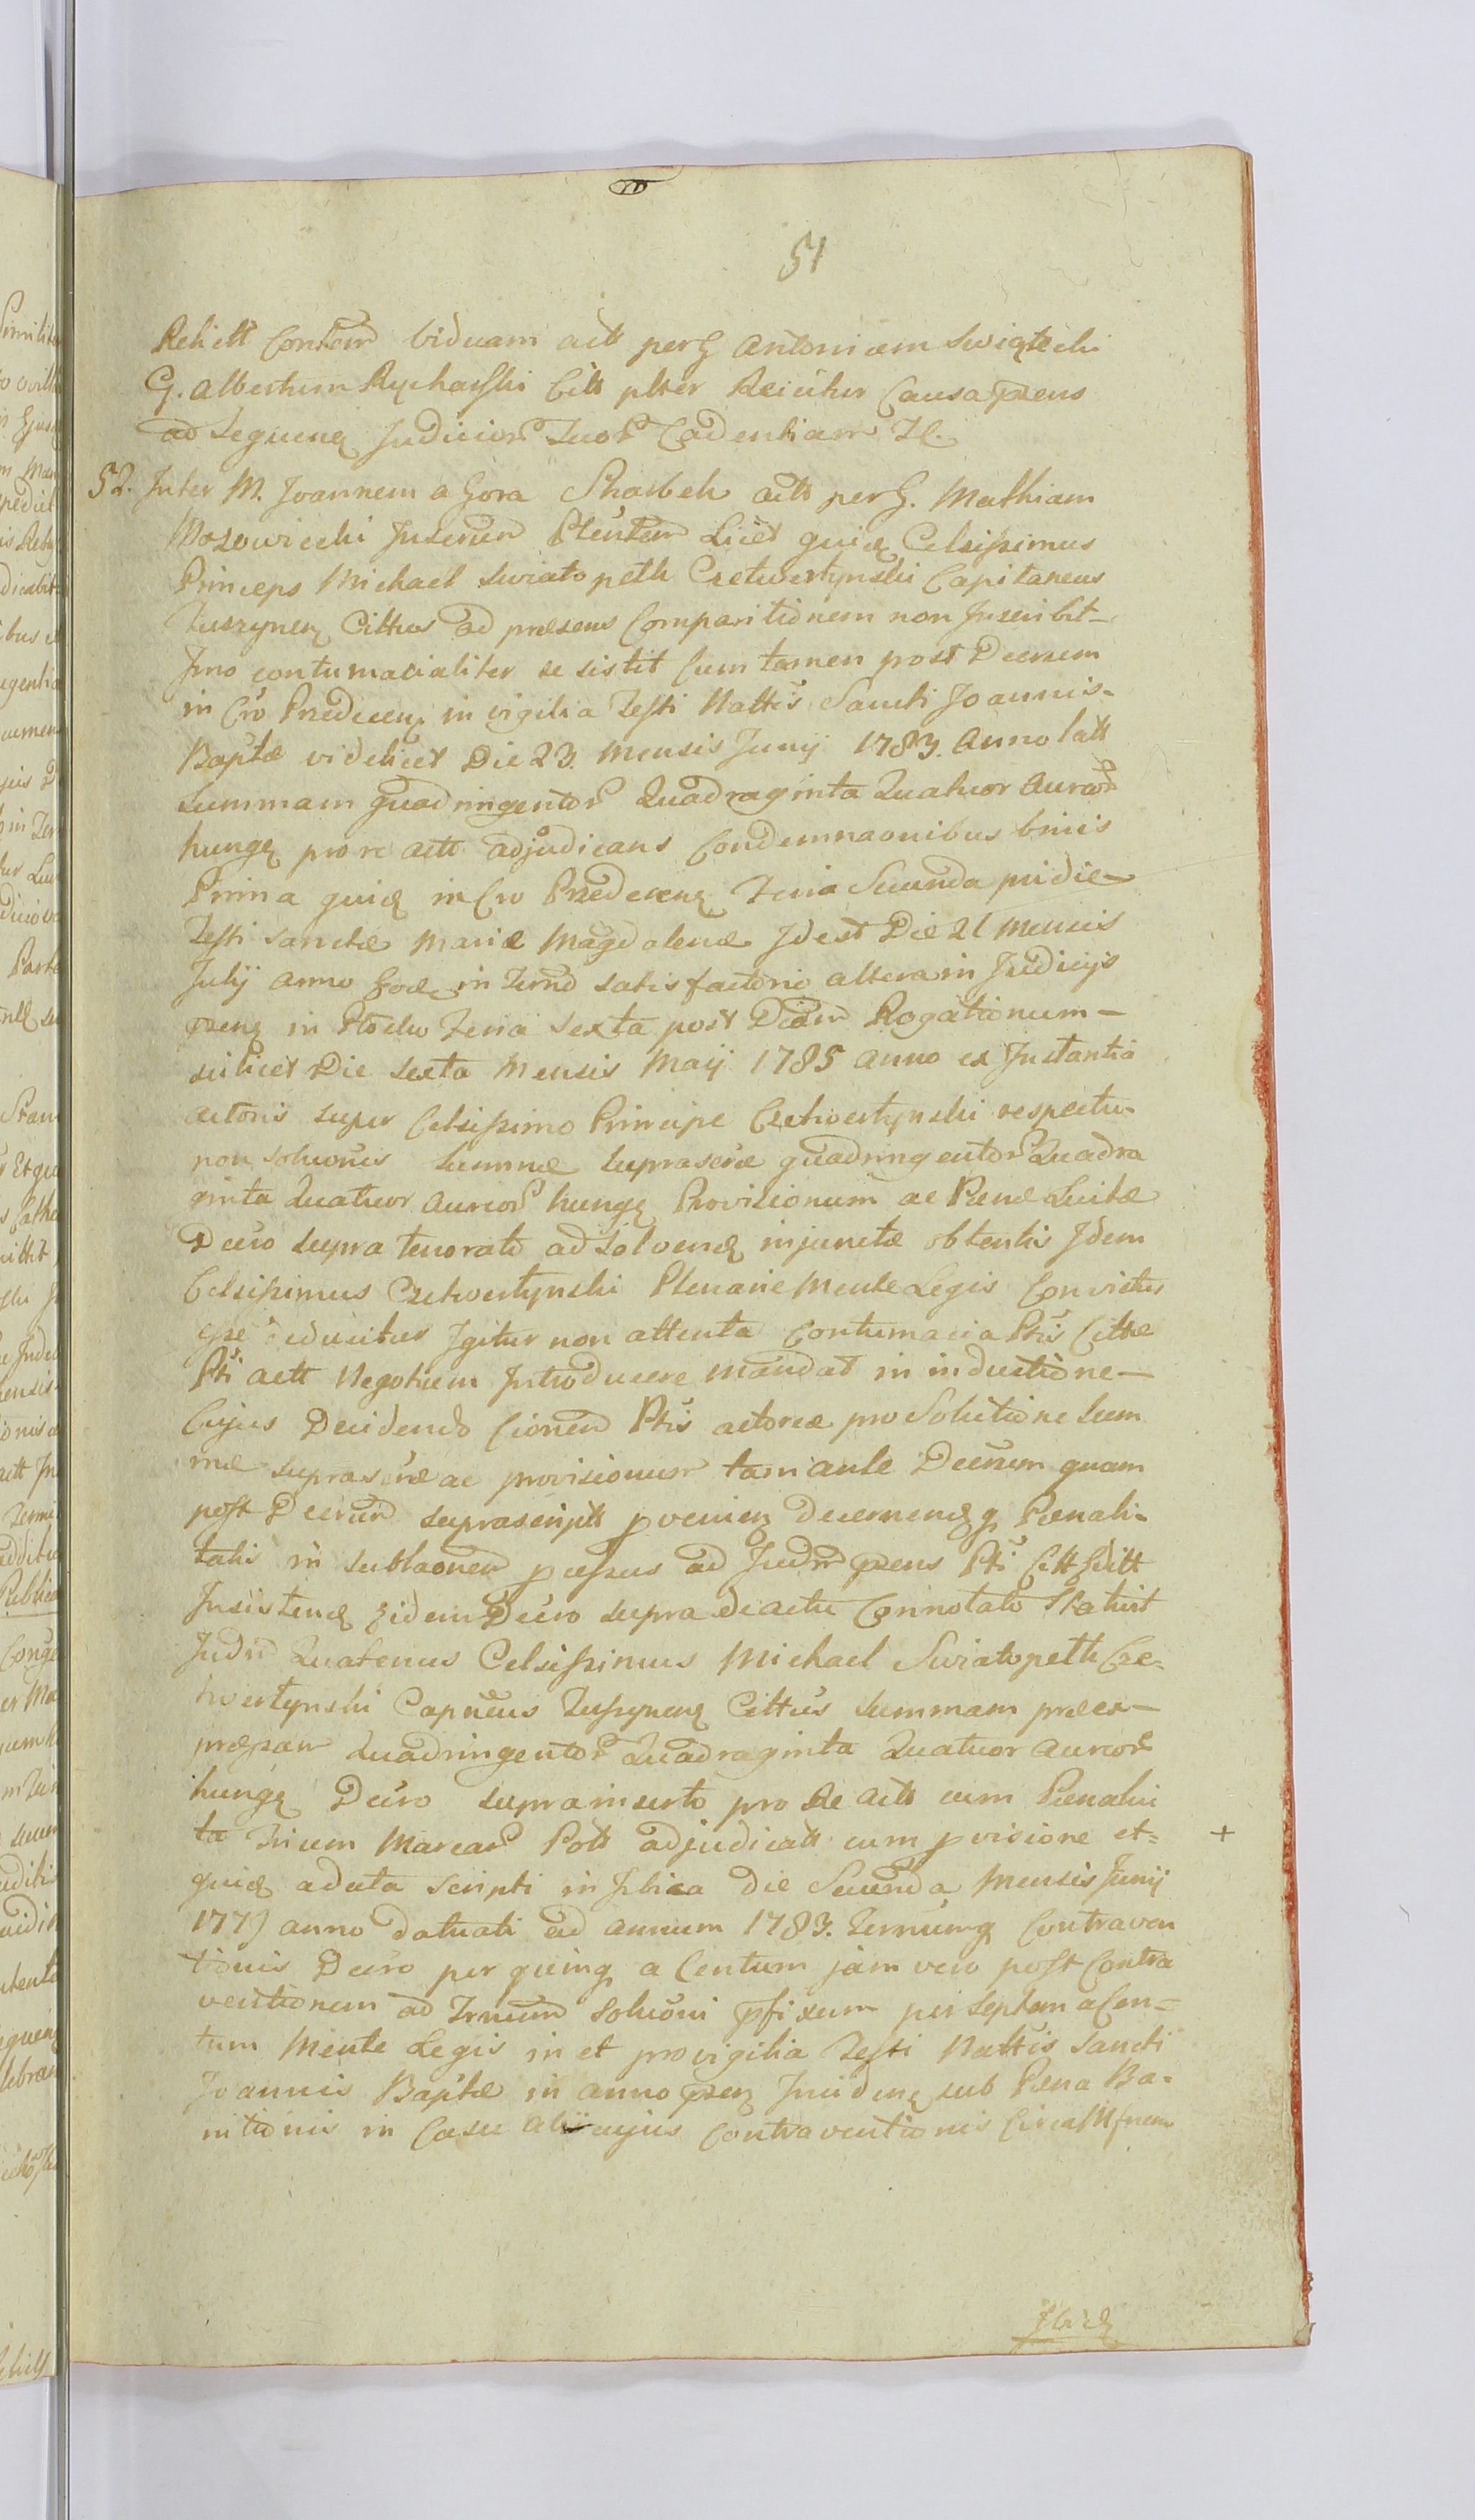 51
Relictt Contem viduam actt per G Antonium Swiątecki
G. Albertum Rycharski Citt plter Reicitur Causa pñs
ad Sequenꝗ Judicior Suor Cadentiam H.
52. Inter M. Joannem a Gora Skarbek actt per G. Mathiam
Mosowiecki Juserun Ptentem Licet quidꝗ Celsissimus
Princeps Michael Swiatopełk Czetwertynski Capitaneus
Tuszynenꝗ Cittus ad præsens Comparitionem non Inscribit
Imo contumacialiter se sistit Cum tamen post Decrrem
in Cro Præduenꝗ in vigilia Festi Nattis Sancti Joannis
Baptæ videlicet Die 23. Mensis Junij 1783. Anno latt
Summam quadringentor Quadraginta Quatuor Aureor
hungꝗ pro re actt adjudicans Condemnaonibus binis
Prima quidꝗ in Cro Prædecenꝗ Feria Secunda pridie
Festi Sanctæ Mariæ Magdalenæ Idest Die 21 Mensis
Julij Anno Eodꝗ in Termo satisfactorio altera in Judicijs
præenꝗ in Płocko Feria Sexta post Diam Rogationum
scilicet Die Sexta Mensis Maij 1785 Anno ex Instantia
actoris super Celsissimo Principe Czetwertynski respectu
non Soluonis Summæ Suprascræ quadringentor Quadra
ginta Quatuor Aureor hungꝗ Provisionum ac Pænæ Luitæ
Decro supra tenorato ad Solvenꝗ injunctæ obtentis Idem
Celsissimus Czetwertynski Plenarie Mente Legis Convictus
esse deducitur Igitur non attenta Contumacia Ptis Cittæ
Pti actt Negotium Introducere mandat in inductione
Cujus Decidendo Cionem Ptis actoreæ pro Solutione Sum
mæ suprascræ ac provisionum tam ante Decrum quam
post Decrum suprascriptt provenienꝗ Decernenꝗ q Pænali
tatis in Sublaonem pcessus ad Judm præns Pti Citt
Insistenꝗ Eidem Decro supra de actu Connotato Statuit
Judm Quatenus Celsissimus Michael Swiatopełk Cze
twertynski Capneus Tuszynenꝗ Cittus Summam præex
præssam Quadringentor Quadraginta Quatuor Aureor
hungꝗ Decro suprainserto pro Re actt cum Pænali
ta Trium Marcar Poll adjudicatt cum provisione et
quidꝗ a data scripti in die Secunda Mensis Junij
177 anno datuati ad annum 1783. Terminumꝗ Contraven
tionis Decro per quinqꝗ a Centum jam vero post Contra
ventionem ad Trminum Soluoni præfixum per Septem a Cen
tum Mente Legis in et pro vigilia Festi Nattis Sancti
Joannis Baptæ in anno præenꝗ Incidenꝗ sub Pæna Ba
nitionis in Casu alicujus Contraventionis
+
Ibidꝗ